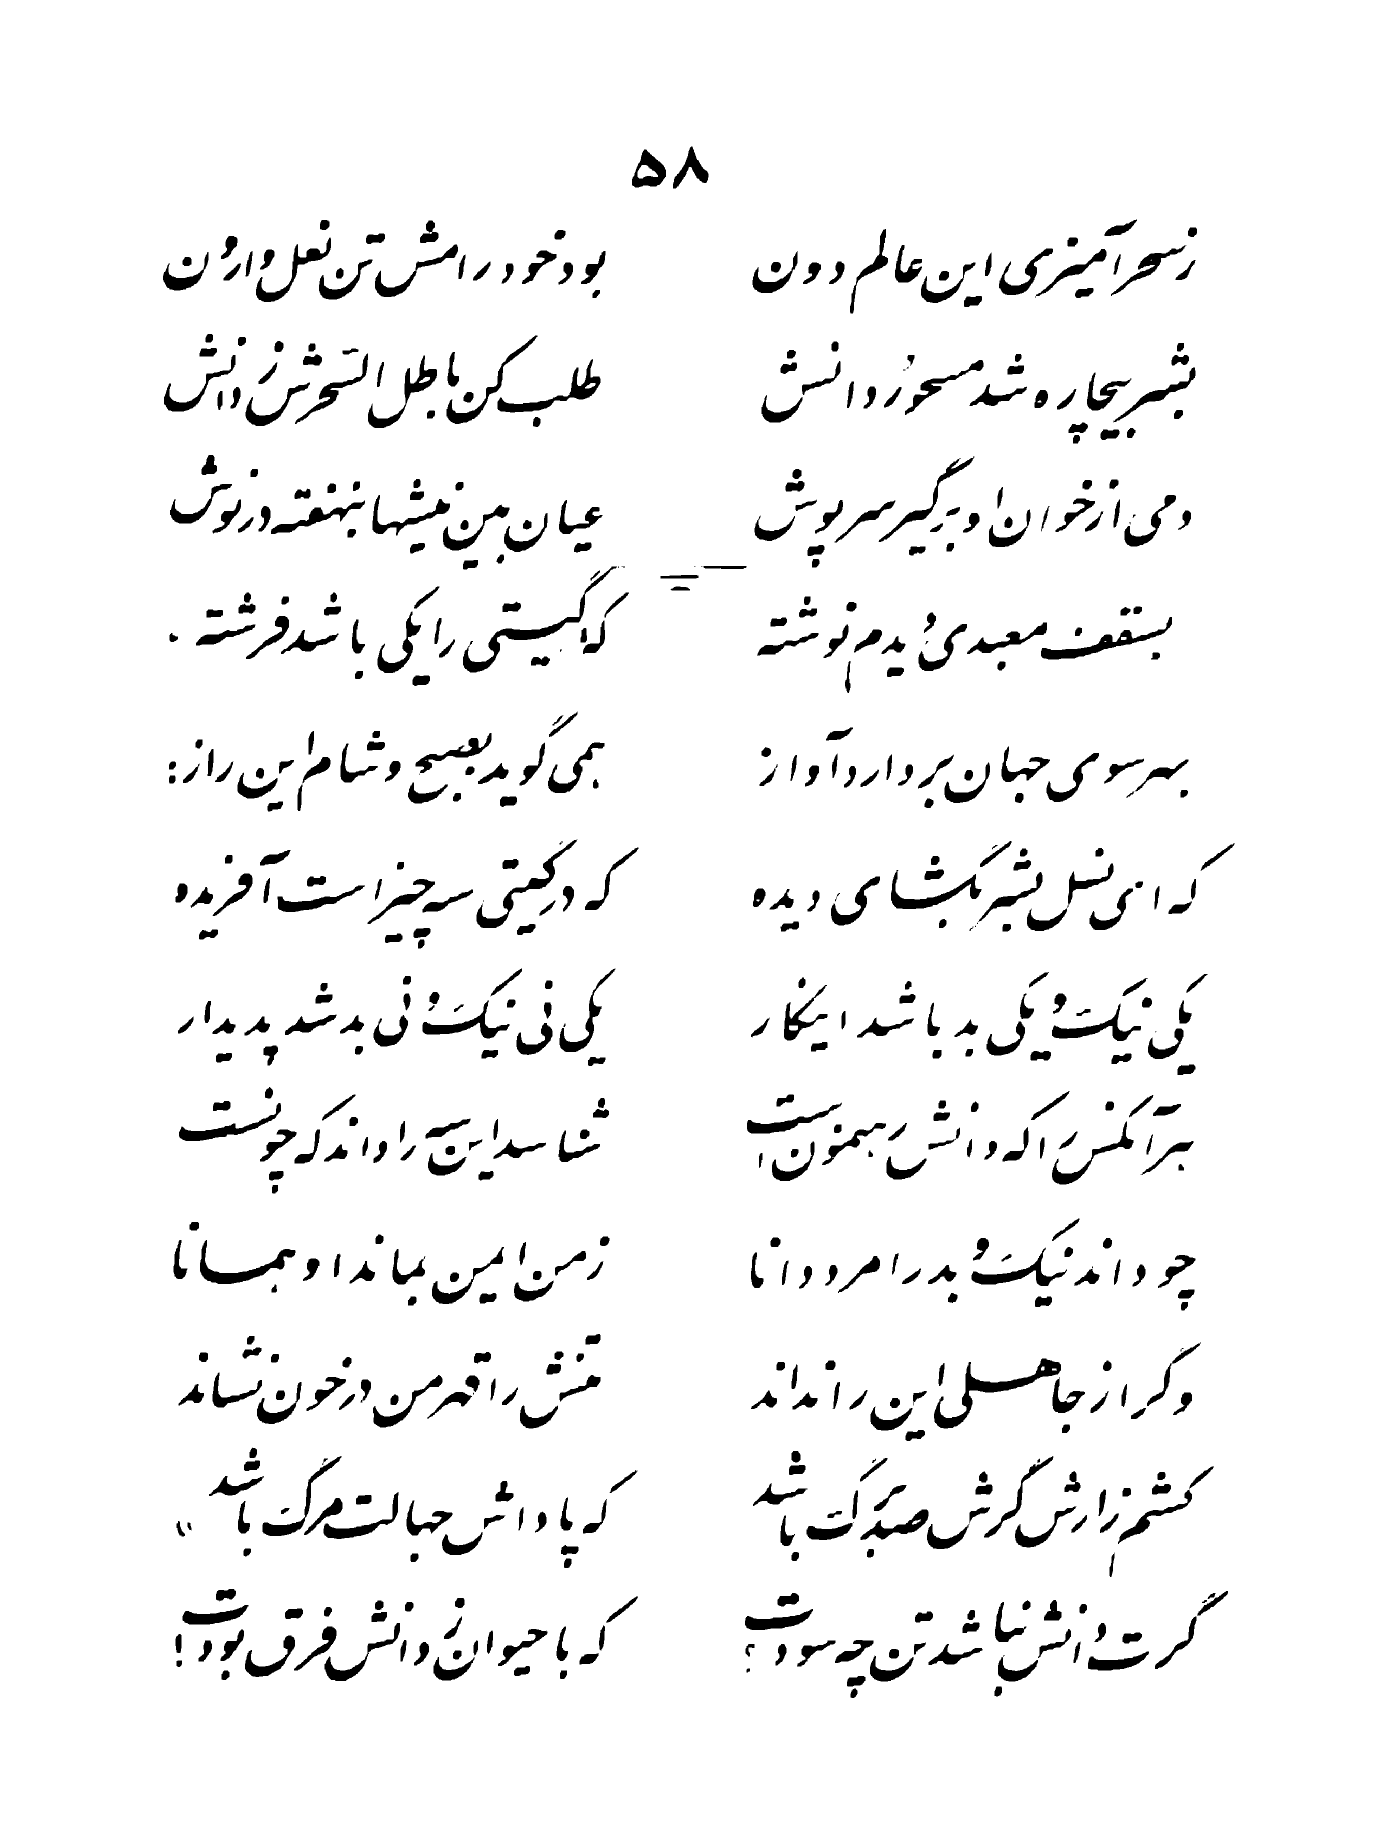 ۵۸
ز سحر آمیزی این عالم دون بود خود رامش تن نعل وارون
بشر بیچاره شد مسحور دانش طلب کن باطل السحرش ز دانش
دمی از خوان او برگیر سرپوش عیان بین نیشها بنهفته در نوش
بسقف معبدی دیدم نوشته که گیتی را یکی باشد فرشته
بهر سوی جهان بردارد آواز همی گوید بصبح و شام این راز:
که ای نسل بشر بگشای دیده که در گیتی سه چیز است آفریده
یکی نیک و یکی بد باشد اینکار یکی نی نیک و نی بد شد پدیدار
هر آنکس را که دانش رهنمون است شناسد این سه را داند که چونست
چو داند نیک و بد را مرد دانا ز من ایمن بماند او همانا
وگر از جاهلی این را نداند تنش را قهر من در خون نشاند
کشم زارش گرش صد برگ باشد که پاداش جهالت مرگ باشد »
گرت دانش نباشد تن چه سودت ؟ که با حیوان ز دانش فرق بودت !